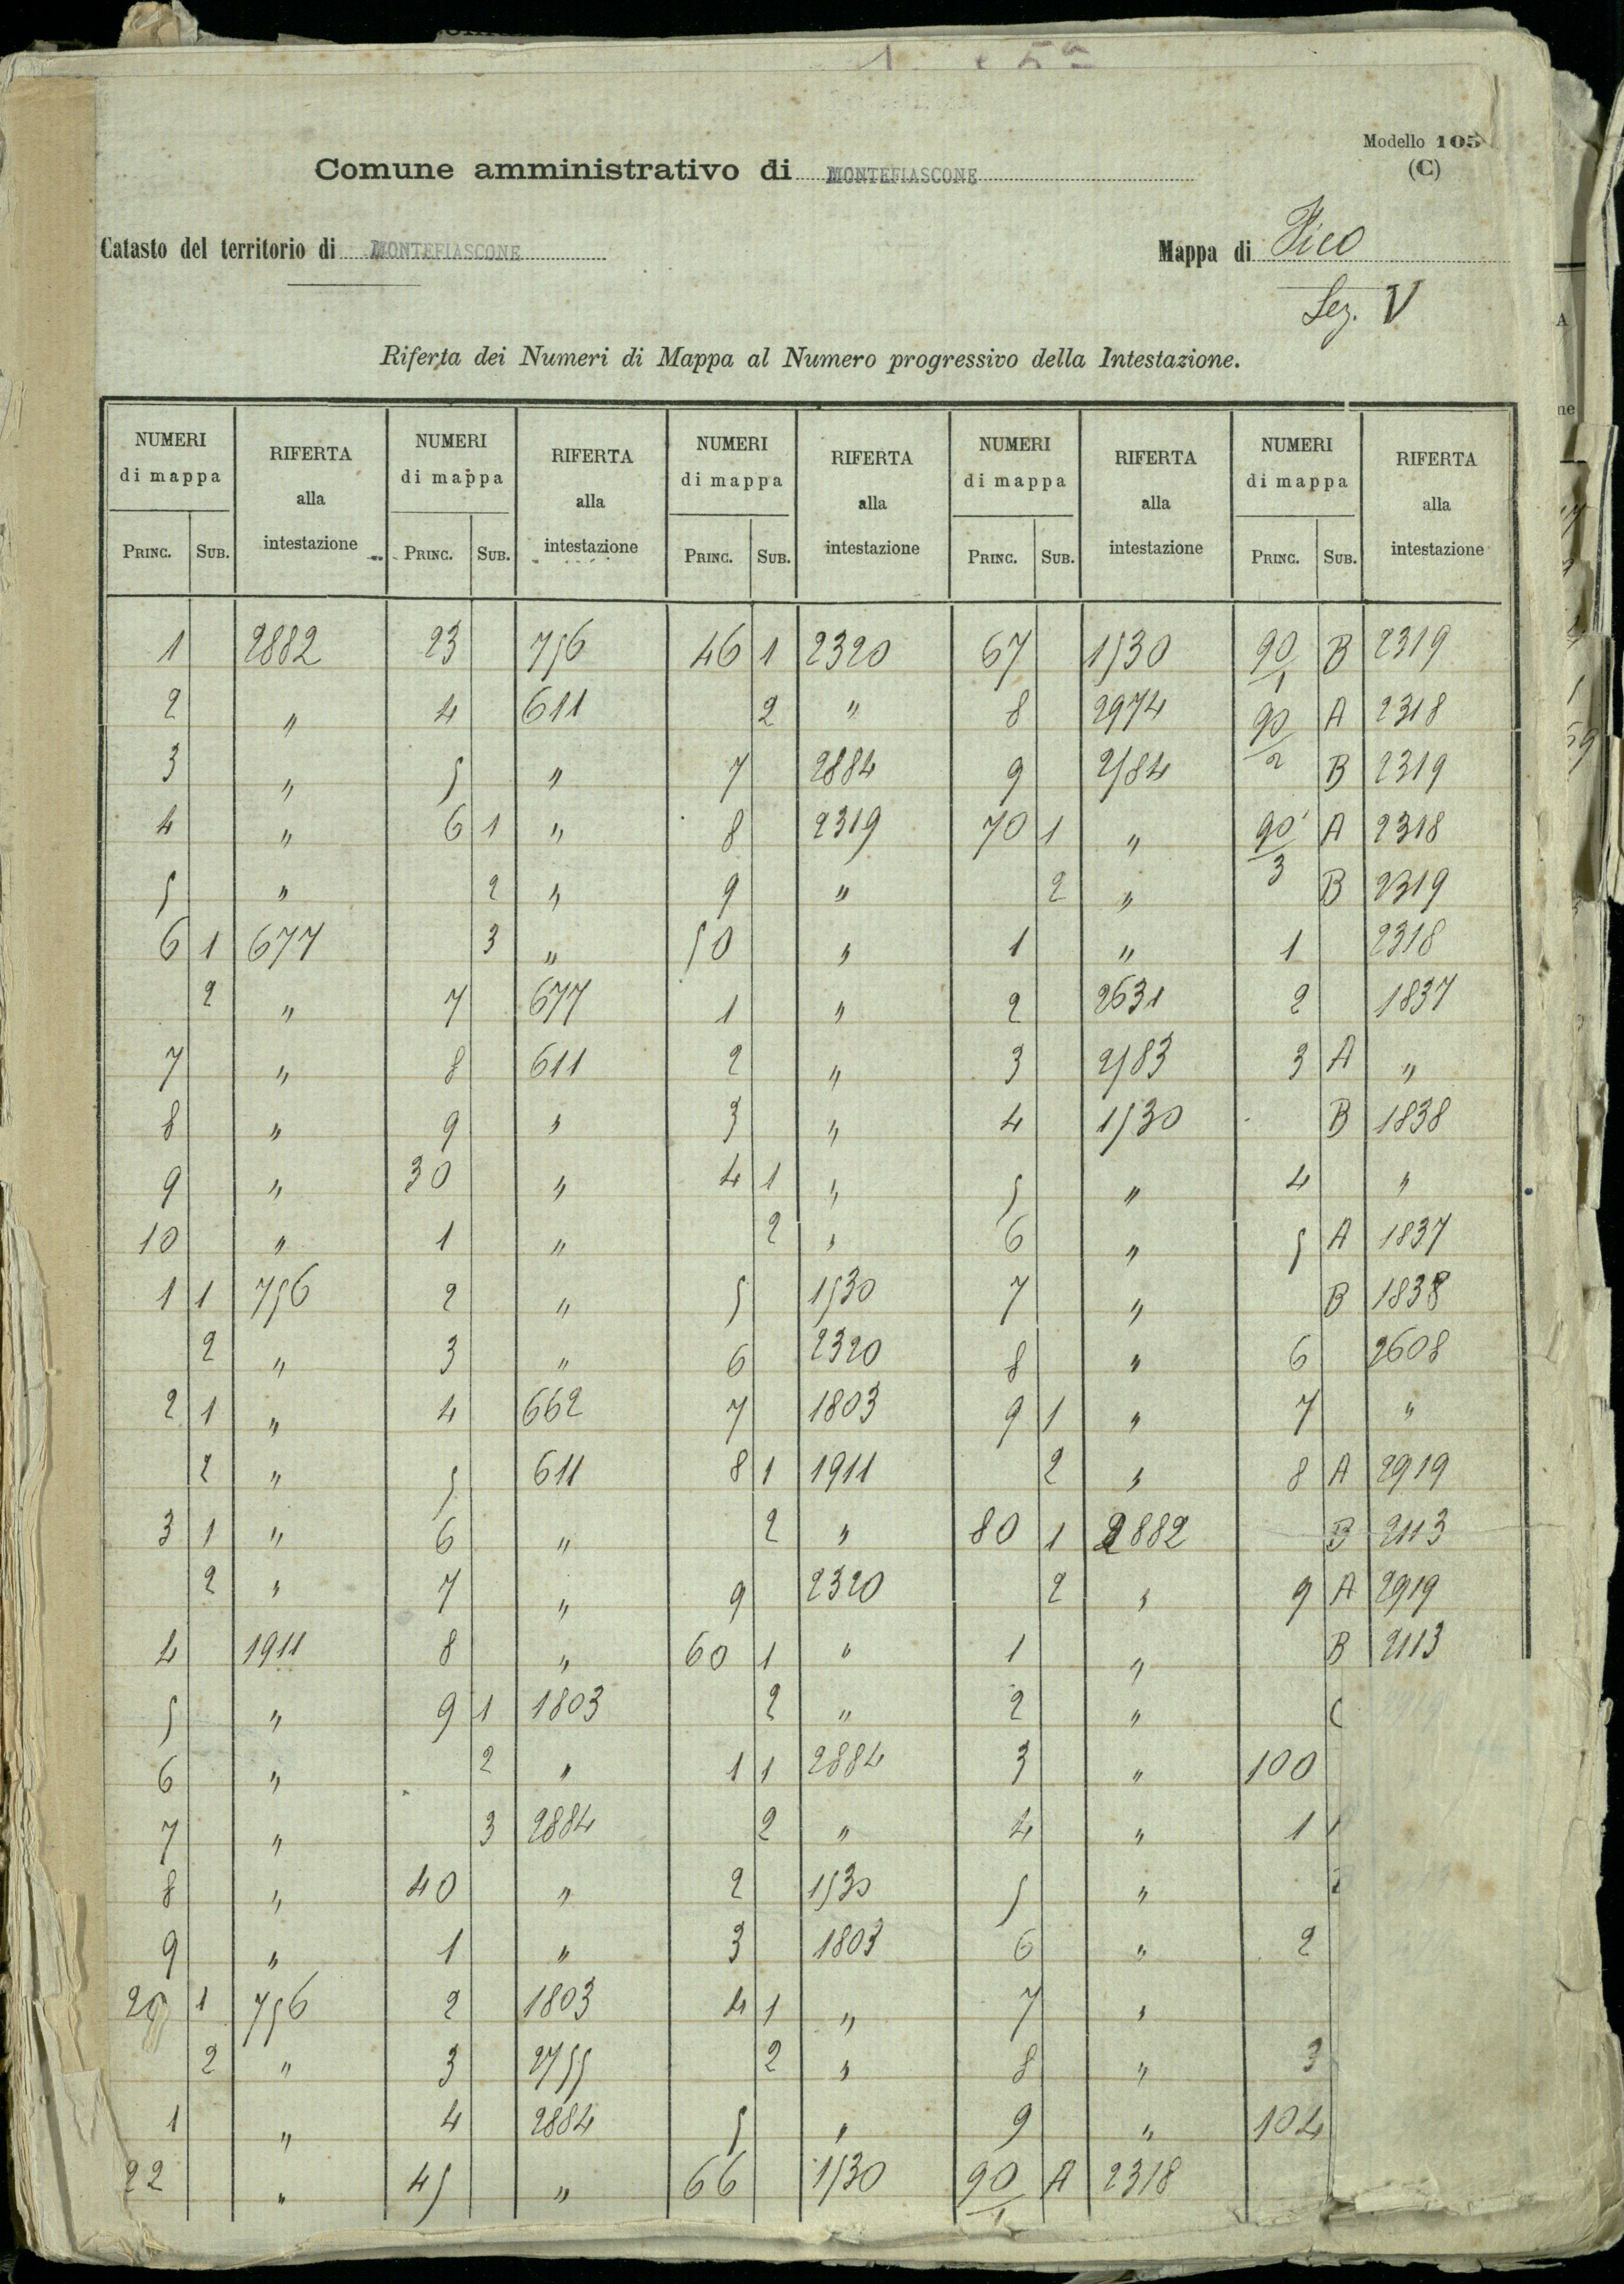 Modello 105
(C)
Comune amministrativo di MONTEFIASCONE
Catasto del territorio di MONTEFIASCONE Mappa di Fico
Sez. V
Riferta dei Numeri di Mappa al Numero progressivo della Intestazione.
NUMERI RIFERTA NUMERI RIFERTA NUMERI RIFERTA NUMERI RIFERTA NUMERI RIFERTA
di mappa alla di mappa alla di mappa alla di mappa alla di mappa alla
PRINC. SUB. intestazione PRINC. SUB. intestazione PRINC. SUB. intestazione PRINC. SUB. intestazione PRINC. SUB. intestazione
1 2882 23 756 46 1 2320 67 1530 90/1 B 2319
2 " 4 611 2 " 8 2974 90/2 A 2318
3 " 5 " 7 2884 9 2584 B 2319
4 " 6 1 " 8 2319 70 1 " 90/3 A 2318
5 " 2 " 9 " 2 " B 2319
6 1 677 3 " 50 " 1 " 1 2318
2 " 7 677 1 " 2 2631 2 1837
7 " 8 611 2 " 3 2583 3 A "
8 " 9 " 3 " 4 1530 B 1838
9 " 30 " 4 1 " 5 " 4 "
10 " 1 " 2 " 6 " 5 A 1837
1 1 756 2 " 5 1530 7 " B 1838
2 " 3 " 6 2320 8 " 6 2608
2 1 " 4 662 7 1803 9 1 " 7 "
2 " 5 611 8 1 1911 2 " 8 A 2919
3 1 " 6 " 2 " 80 1 2882 B 2113
2 " 7 " 9 2320 2 " 9 A 2919
4 1911 8 " 60 1 " 1 " B 2113
5 " 9 1 1803 2 " 2 " C
6 " 2 " 1 1 2884 3 " 100
7 " 3 2884 2 " 4 " 1
8 " 40 " 2 1530 5 "
9 " 1 " 3 1803 6 " 2
20 1 756 2 1803 4 1 " 7 "
2 " 3 2755 2 " 8 " 3
1 " 4 2884 5 " 9 " 104
22 " 45 " 66 1530 90/1 A 2318